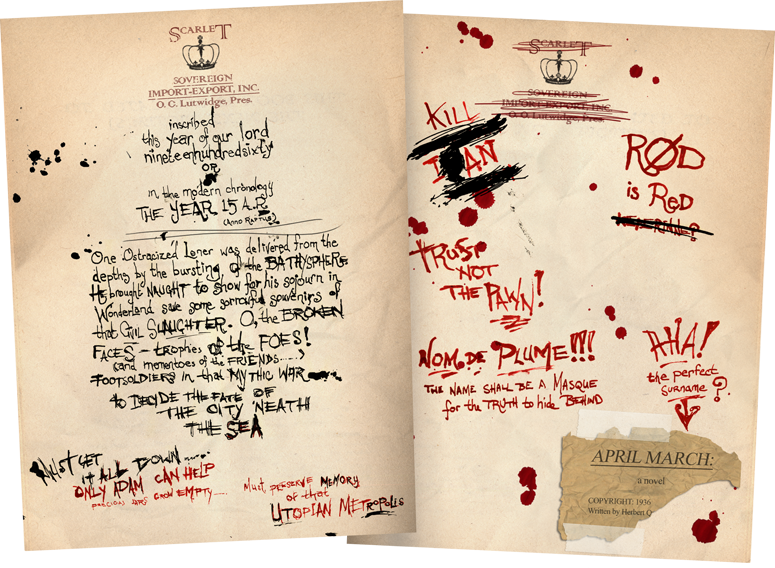 SCARLET
SOVEREIGN
IMPORT-EXPORT, INC.
O. C. Lutwidge, Pres.
inscribed
this year of our lord
nineteenhundredsixty
OR
in the modern chronology
THE YEAR 15 A.R.
(ANNO RAPTUS)
One Ostracized Loner was delivered from the
depths by the bursting of the BATHYSPHERE
He brought NAUGHT to show for his sojourn in
Wonderland save some sorrowful souvenirs of
that CIVIL SLAUGHTER. O, the BROKEN
FACES - trophies of the FOES!
(and mementoes of the FRIENDS.....)
FOOTSOLDIERS in that MYTHIC WAR
to DECIDE THE FATE OF
THE CITY 'NEATH
THE SEA
MUST GET
IT ALL DOWN.....
ONLY ADAM CAN HELP
PRECIOUS JARS GROW EMPTY.....
Must PRESERVE MEMORY
of that
UTOPIAN METROPOLIS
SCARLET
SOVEREIGN
IMPORT-EXPORT, INC.
O. C. Lutwidge, Pres.
KILL
RØD
is RED
TRUST
NOT
THE PAWN!
NOM DE PLUME!!!
THE NAME SHALL BE A MASQUE
for the TRUTH to hide BEHIND
AHA!
the perfect
surname?
APRIL MARCH:
a novel
COPYRIGHT: 1936
Written by Herbert Q